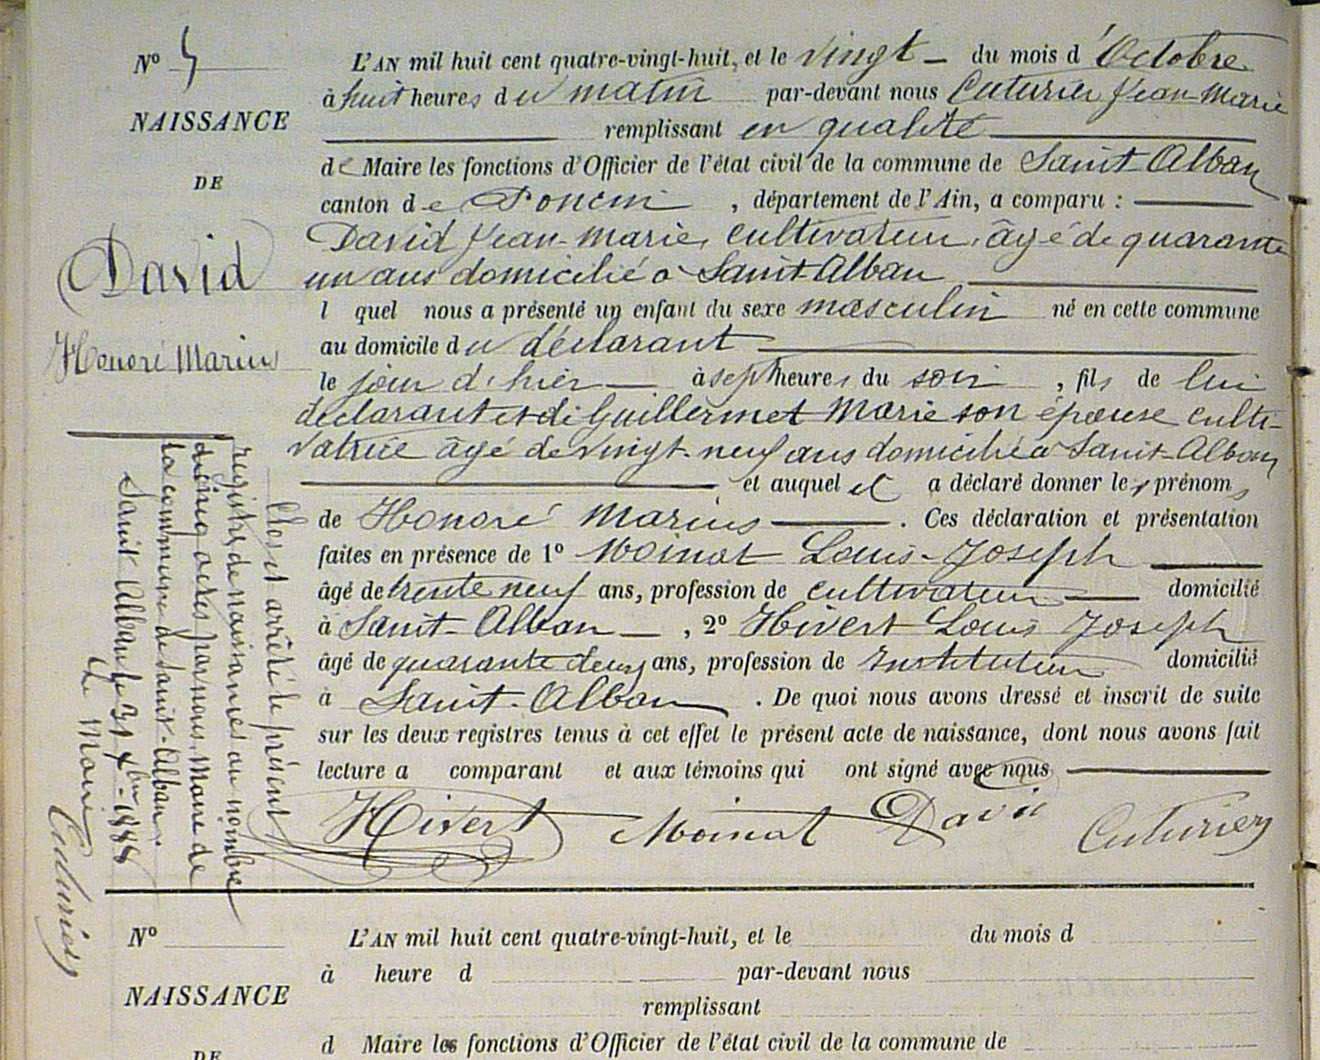 N° 5
NAISSANCE
DE
David
Honoré Marius
L'AN mil huit cent quatre-vingt-huit, et le vingt du mois d'Octobre
à huit heures du matin par-devant nous Cuturier Jean-Marie
remplissant en qualité
de Maire les fonctions d'Officier de l'état civil de la commune de Saint-Alban
canton de Poncin, département de l'Ain, a comparu :
David Jean-Marie, cultivateur, âgé de quarante
un ans domicilié à Saint-Alban
l quel nous a présenté un enfant du sexe masculin né en cette commune
au domicile du déclarant
le jour d'hier à sept heures du soir, fils de lui
déclarant et de Guillermet Marie son épouse culti-
vatrice âgé de vingt-neuf ans domicilié à Saint-Alban
et auquel il a déclaré donner les prénoms
de Honoré Marius. Ces déclaration et présentation
faites en présence de 1° Moinat Louis-Joseph
âgé de trente neuf ans, profession de cultivateur domicilié
à Saint-Alban, 2° Hivert Louis Joseph
âgé de quarante deux ans, profession de Instituteur domicilié
à Saint-Alban. De quoi nous avons dressé et inscrit de suite
sur les deux registres tenus à cet effet le présent acte de naissance, dont nous avons fait
lecture a comparant et aux témoins qui ont signé avec nous
Hivert Moinat David Cuturier
Clos et arrêté le présent
registre de naissances au nombre
de cinq actes par nous, Maire de
la commune de Saint-Alban.
Saint Alban le 31 Xbre 1888
Le Maire
Cuturier
N°
NAISSANCE
DE
L'AN mil huit cent quatre-vingt-huit, et le du mois d
à heure d par-devant nous
remplissant
d Maire les fonctions d'Officier de l'état civil de la commune de